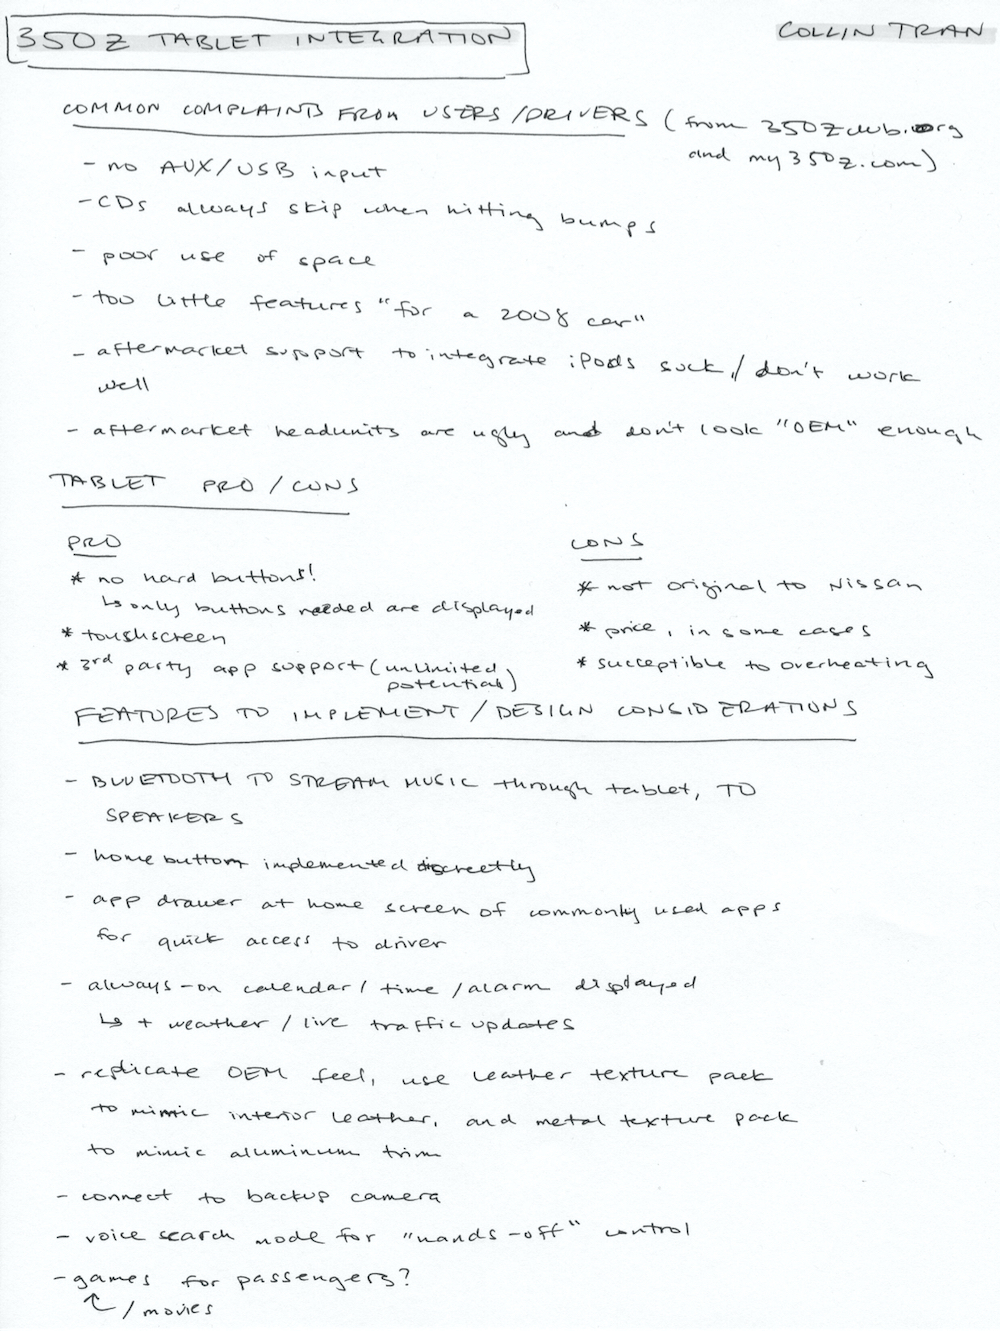 350Z TABLET INTEGRATION
COLLIN TRAN
COMMON COMPLAINTS FROM USERS/DRIVERS (from 350Zclub.org
and my350z.com)
- no AUX/USB input
- CDs always skip when hitting bumps
- poor use of space
- too little features "for a 2008 car"
- aftermarket support to integrate iPods suck/don't work
well
- aftermarket headunits are ugly and don't look "OEM" enough
TABLET PRO/CONS
PRO
* no hard buttons!
↳ only buttons needed are displayed
* toushscreen
* 3rd party app support (unlimited
potential)
CONS
* not original to Nissan
* price, in some cases
* succeptible to overheating
FEATURES TO IMPLEMENT/DESIGN CONSIDERATIONS
- BLUETOOTH TO STREAM MUSIC through tablet, TO
SPEAKERS
- home button implemented discreetly
- app drawer at home screen of commonly used apps
for quick access to driver
- always-on calendar/time/alarm displayed
↳ + weather/live traffic updates
- replicate OEM feel, use leather texture pack
to mimic interior leather, and metal texture pack
to mimic aluminum trim
- connect to backup camera
- voice search mode for "hands-off" control
- games for passengers?
/movies